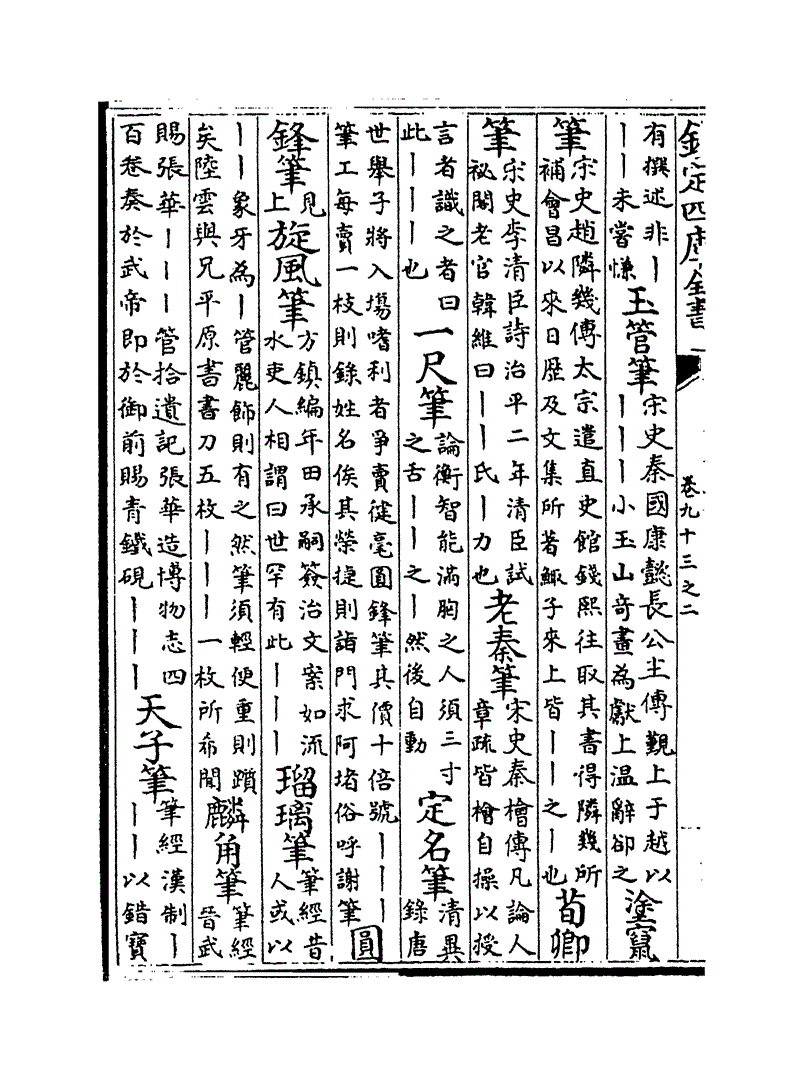 欽定四庫全書 卷九十三之二
有撰述非丨丨丨未嘗慊 玉管筆 宋史秦國康懿長公主傳覲上于越以丨丨丨小玉山奇畫為獻上溫辭卻之 塗竄
筆 宋史趙隣幾傳太宗遣直史館錢熙往取其書得隣幾所補會昌以來日歴及文集所著鯫子來上皆丨丨之丨也 荀卿
筆 宋史李清臣詩治平二年清臣試祕閣老官韓維曰丨丨氏丨力也 老秦筆 宋史秦檜傳凡論人章疏皆檜自操以授
言者識之者曰此丨丨丨也 一尺筆 論衡智能滿胸之人須三寸之舌丨丨之丨然後自動 定名筆 清異錄唐
世舉子將入塲嗜利者爭賣徤毫圓鋒筆其價十倍號丨丨丨筆工每賣一枝則錄姓名俟其榮捷則詣門求阿堵俗呼謝筆 圓
鋒筆 見上 旋風筆 方鎮編年田承嗣簽治文案如流水吏人相謂曰世罕有此丨丨丨 瑠璃筆 筆經昔人或以
丨丨象牙為丨管麗飾則有之然筆須輕便重則躓矣陸雲與兄平原書書刀五枚丨丨丨一枚所希聞 麟角筆 筆經晉武
賜張華丨丨丨管拾遺記張華造博物志四百卷奏於武帝即於御前賜青鐵硯丨丨丨 天子筆 筆經漢制丨丨丨以錯寶